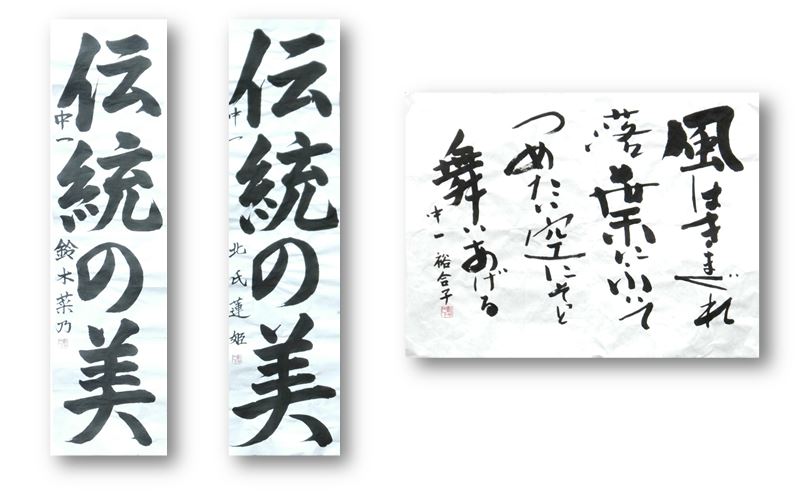 伝統の美
中一 鈴木菜乃
伝統の美
中一 北氏蓮姫
風はきまぐれ
落葉にふいて
つめたい空にそっと
舞いあげる
中一 裕合子